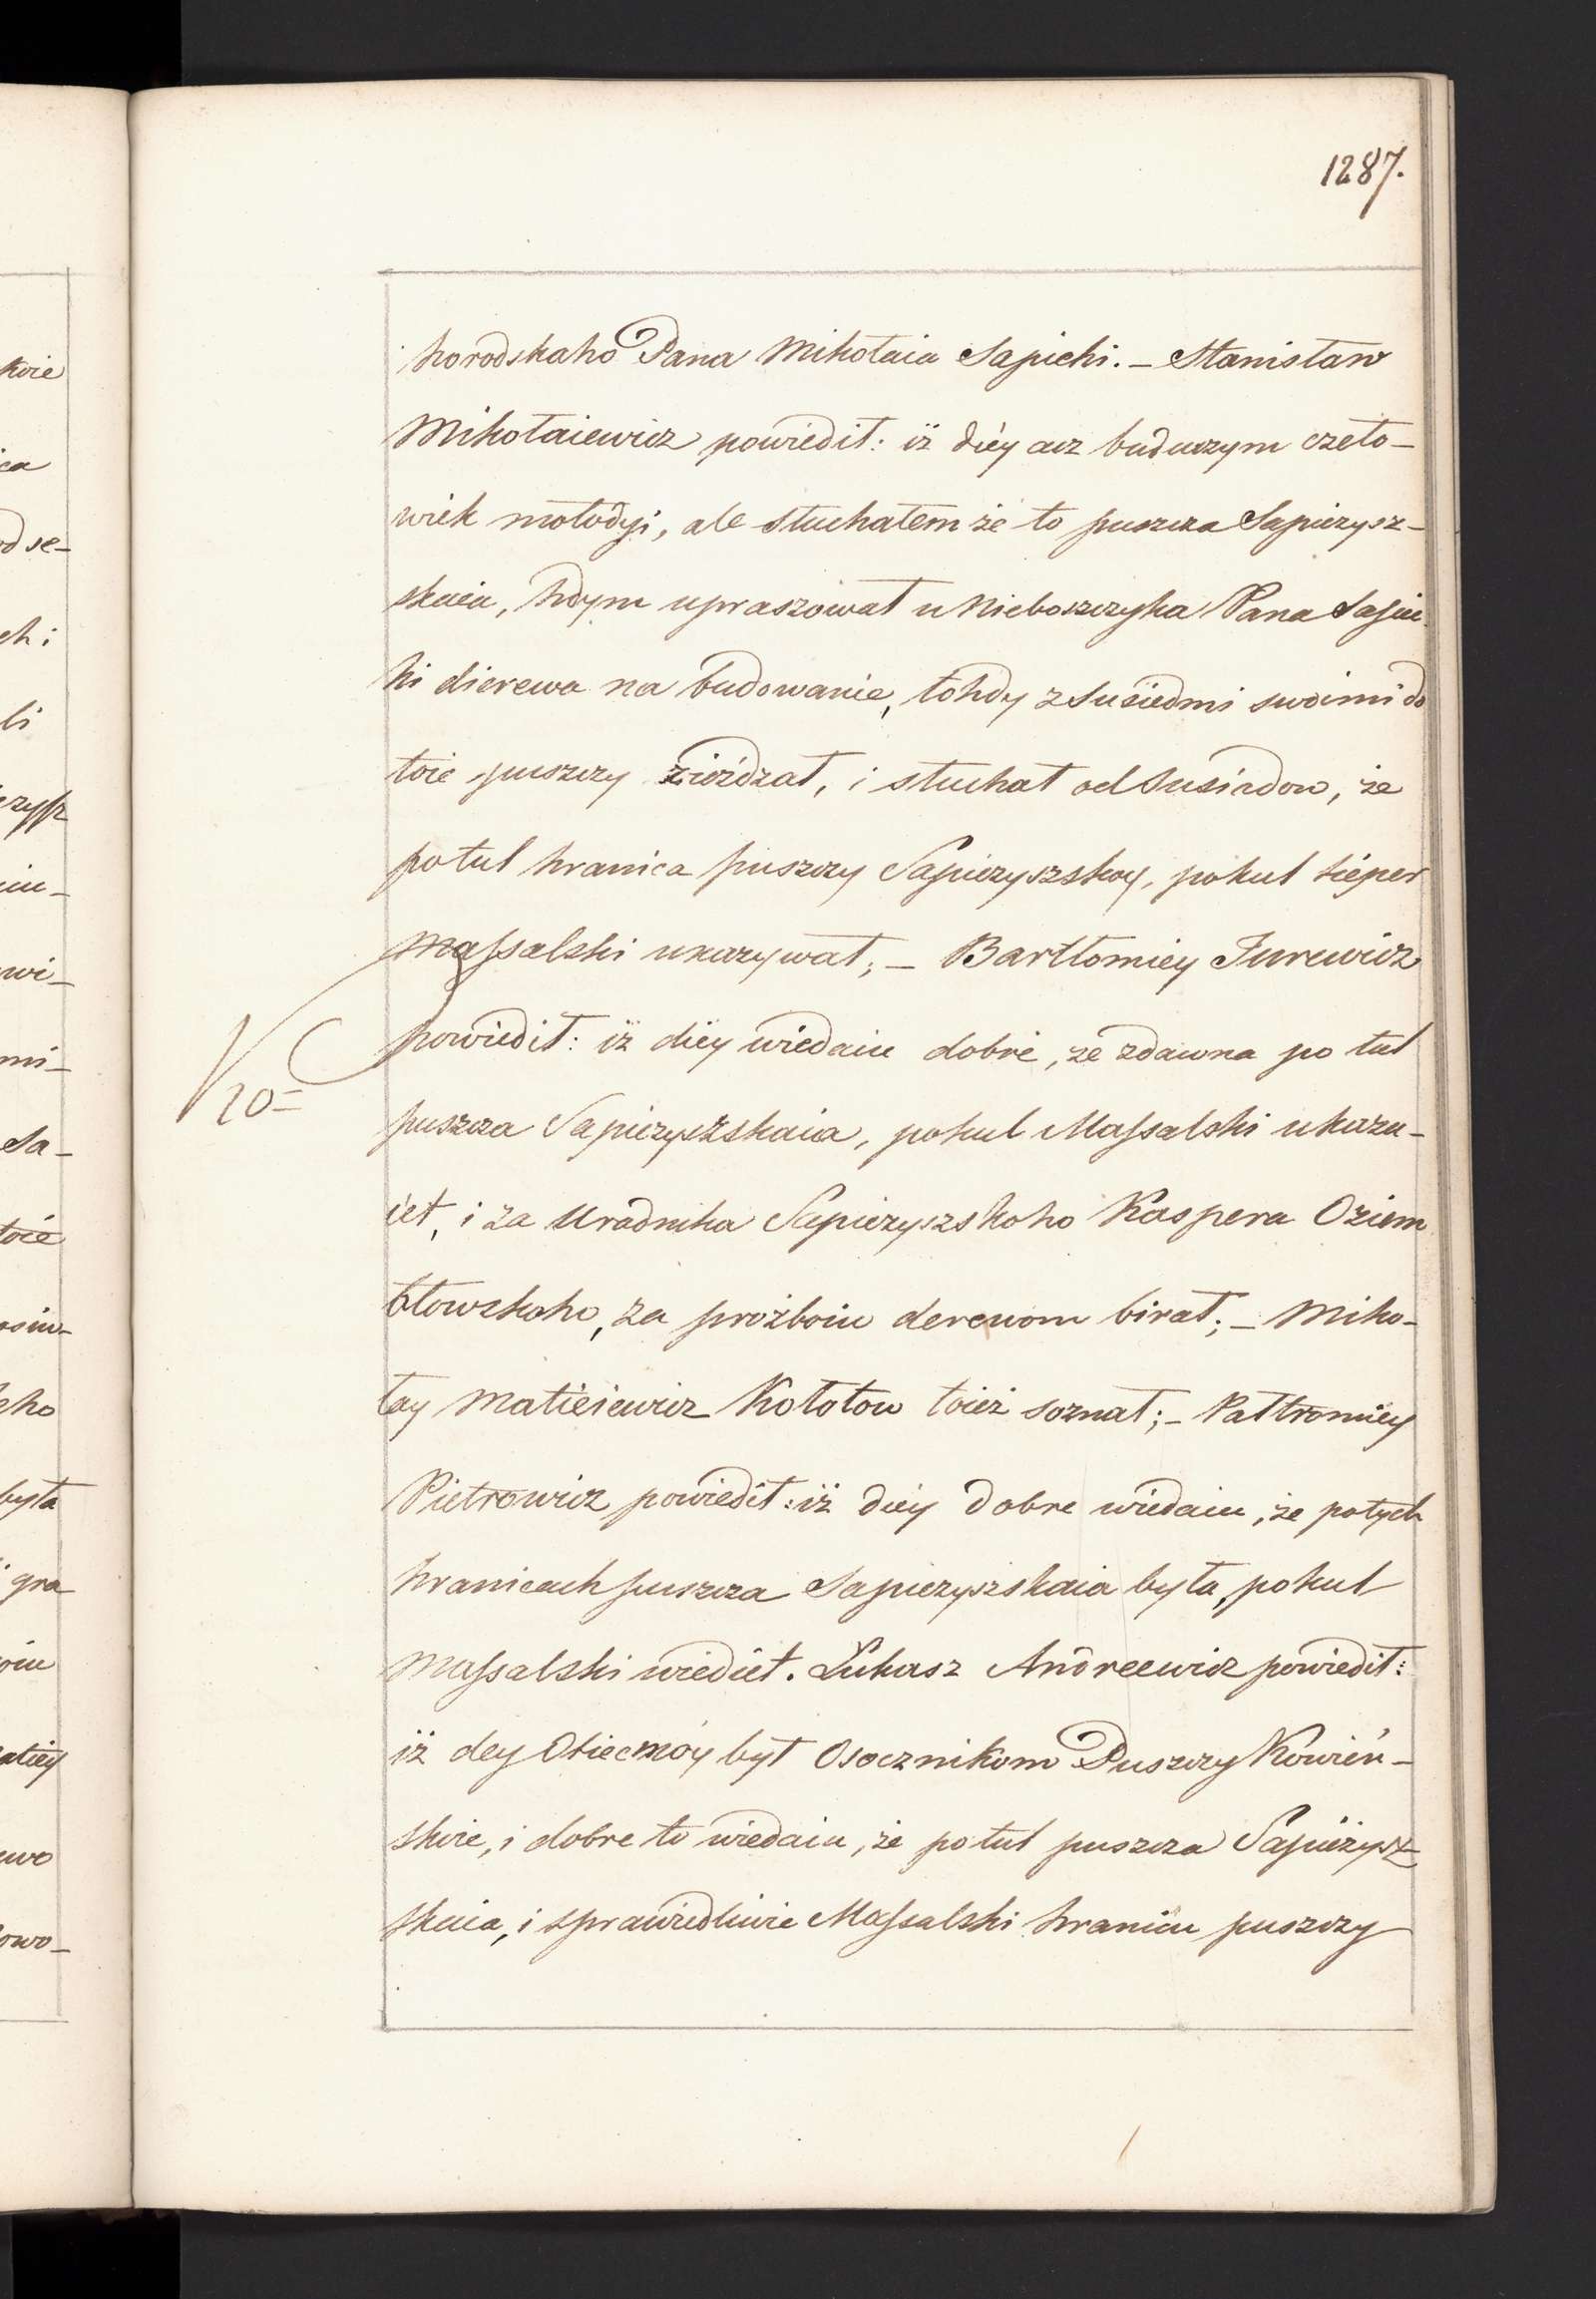 1287.
horodskaho Pana Mikołaia Sapiehi. – Stanisław
Mikołaiewicz powiedił: iż diéy acz buduczym czeło-
wiek mołodyi, ale słuchałem że to puszcza Sapiezysz-
skaia, hdym upraszował u Nieboszczyka Pana Sapie-
hi dierewa na budowanie, tohdy z Susiedmi swoimi do
toie puszczy zieżdżał, i słuchał od Susiadow, że
potul hranica puszczy Sapiezyszskoy, pokul tiéper
Massalski ukazywał; – Barttomiey Jurewicz
powiedił: iż diéy wiedaiu dobrè, że zdawna po tul
puszcza Sapiezyszskaia, pokul Massalski ukazu-
iet, i za Uradnika Sapieżyszskoho Kaspera Oziem
błowskoho, za proźboiu derewom birał; – Miko-
łay Matiéiewicz Kołotow toież soznał; – Pattromiey
Pietrowicz powiedił: iż diéy dobre wiedaiu, że potych
hranicach puszcza Sapiezyszskaia była, pokul
Massalski wiediét. Łukasz Andreewicz powiedił:
iż dey Otiec móy był Osocznikom Puszczy Kowień-
skoie, i dobre to wiedaiu, że potul puszcza Sapiéżysz-
skaia, i sprawiedliwie Massalski hranicu puszczy
20=
koie
ica
od se-
ehi
li
iu-
wi-
mi-
Sa-
toié
osiu-
cho
była
gra
oiu
atiéy
uwo
owo-